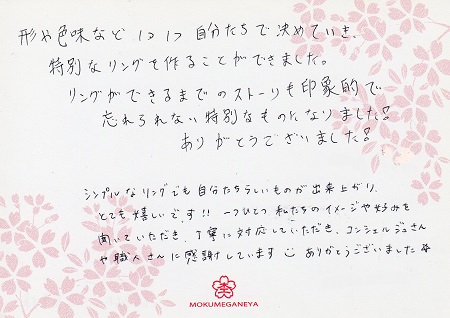 形や色味など1つ1つ自分たちで決めていき、
特別なリングを作ることができました。
リングができるまでのストーリーも印象的で
忘れられない特別なものになりました!
ありがとうございました!
シンプルなリングでも自分たちらしいものが出来上がり、
とても嬉しいです!! 一つひとつ私たちのイメージや好みを
聞いていただき、丁寧に対応していただき、コンシェルジュさん
や職人さんに感謝しています ありがとうございました
MOKUMEGANEYA